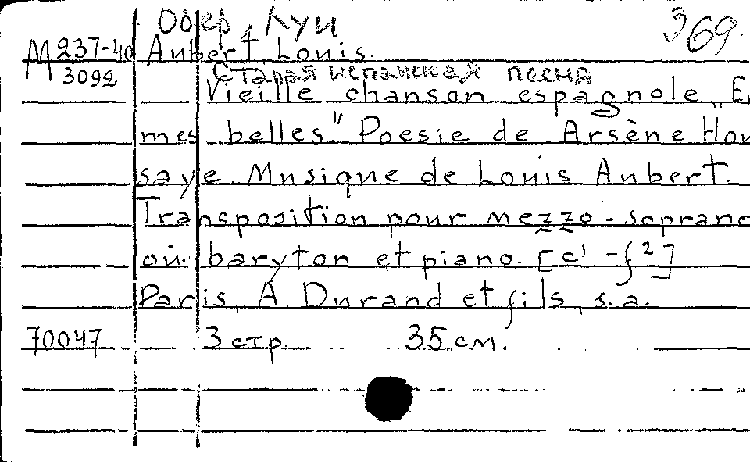 Обер, Луи 369.
М 237-40 Aubert Louis.
3092 Старая испанская песня
Vieille chanson espagnole „E
mes belles" Poesie de Arsène Hou
saye. Musique de Louis Aubert.
Transposition pour mezzo-soprano
ou baryton et piano. [c¹-f²]
Paris, A Durand et fils, s.a.
70047 3 стр. 35 см.